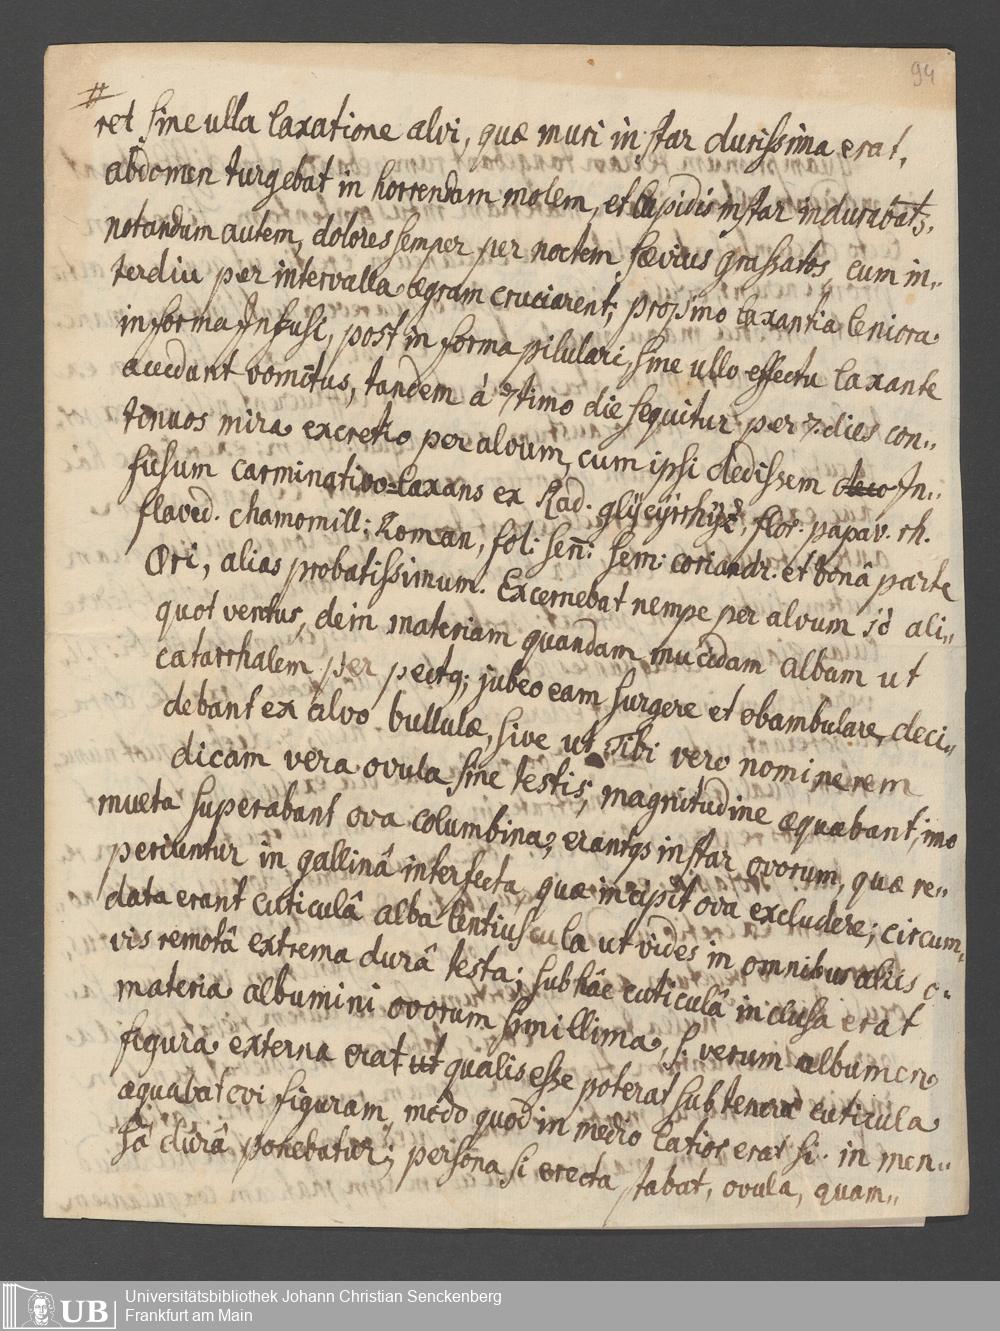 94
#
ret sine ulla laxatione alvi, quæ muri instar durissima erat,
abdomen turgebat in horrendam molem, et lapidis instar indurabat;
notandum autem, dolores semper per noctem sævius grassatos, cum in„
terdiu per intervalla ægram cruciarent; propino laxantia leniora
in forma Infusi, post in forma pilulari, sine ullo effectu laxante
accedunt vomitus, tandem à 7timo die sequitur per 7. dies con„
tinuos mira excretio per alvum, cum ipsi dedissem In„
fusum carminativo=laxans ex Rad. glÿcÿrrhiz, flor. papav. rh.
flaved. chamomill: Roman, fol: sen: sem: coriandr. et bonâ parte
Ori, alias probatissimum. Excernebat nempe per alvum ali„
quot ventus, dein materiam quandam mucidam albam ut
catarrhalem per pectq; jubeo eam surgere et obambulare, deci„
debant ex alvo bullulæ, sive ut Tibi vero nomine rem
dicam vera ovula sine testis; magnitudine æquabant, imo
superabant ova columbina, erantqs instar ovorum, quæ re„
periuntur in gallinâ interfecta, quæ incipit ova excludere; circum„
data erant cuticulâ alba lentiuscula ut vides in omnibus aliis o„
vis remotâ extrema durâ testa; sub hâc cuticulâ inclusa erat
materia albumini ovorum simillima, s. verum albumen
figura externa erat ut qualis esse poterat sub tenera cuticula
æquabat ovi figuram, modo quod in medio latior erat si in men„
sâ durâ ponebatur; persona si erecta stabat, ovula, quam„
UB
Universitätsbibliothek Johann Christian Senckenberg
Frankfurt am Main